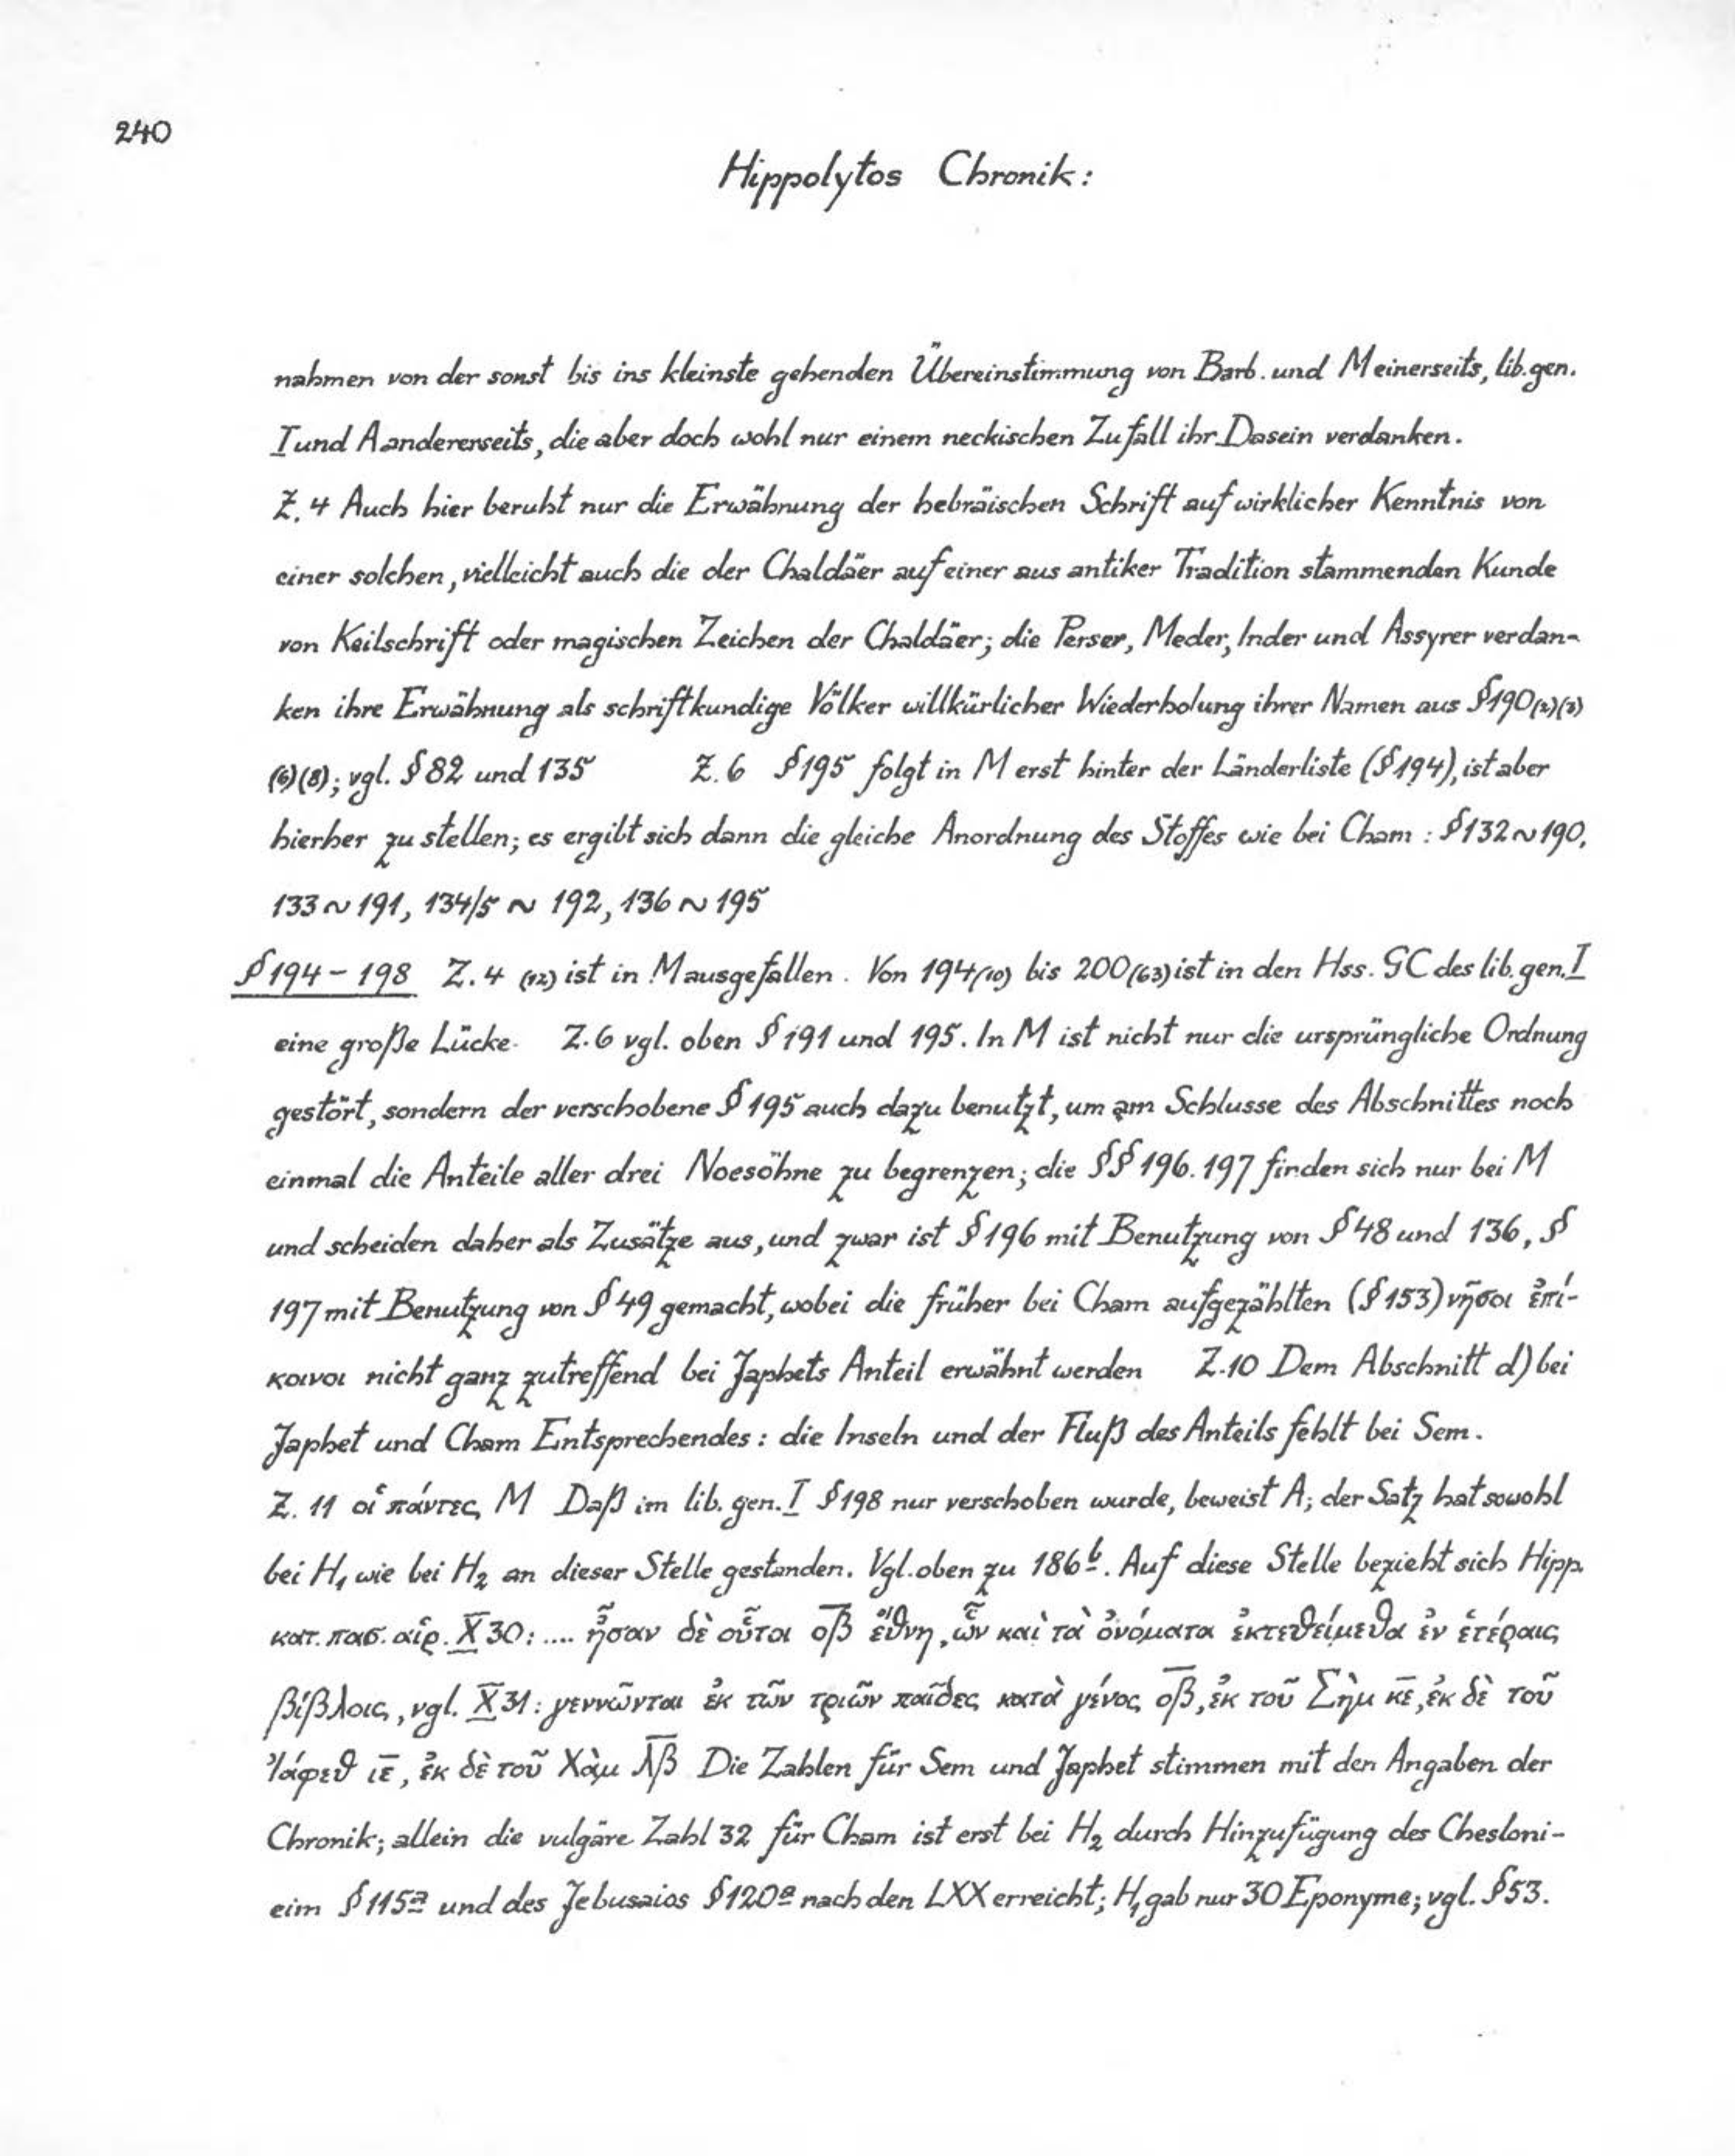 240
Hippolytos Chronik:
nahmen von der sonst bis ins kleinste gehenden Übereinstimmung von Barb. und M einerseits, lib. gen.
I und A andererseits, die aber doch wohl nur einem neckischen Zufall ihr Dasein verdanken.
Z. 4 Auch hier beruht nur die Erwähnung der hebräischen Schrift auf wirklicher Kenntnis von
einer solchen, vielleicht auch die der Chaldäer auf einer aus antiker Tradition stammenden Kunde
von Keilschrift oder magischen Zeichen der Chaldäer; die Perser, Meder, Inder und Assyrer verdan-
ken ihre Erwähnung als schriftkundige Völker willkürlicher Wiederholung ihrer Namen aus §190(2)(3)
(6)(8); vgl. §82 und 135 Z. 6 §195 folgt in M erst hinter der Länderliste (§194), ist aber
hierher zu stellen; es ergibt sich dann die gleiche Anordnung des Stoffes wie bei Cham: §132 ~ 190,
133 ~ 191, 134/5 ~ 192, 136 ~ 195
§194 - 198 Z. 4 (12) ist in M ausgefallen. Von 194(10) bis 200(63) ist in den Hss. GC des lib. gen. I
eine große Lücke. Z. 6 vgl. oben §191 und 195. In M ist nicht nur die ursprüngliche Ordnung
gestört, sondern der verschobene §195 auch dazu benutzt, um am Schlusse des Abschnittes noch
einmal die Anteile aller drei Noesöhne zu begrenzen; die §§196. 197 finden sich nur bei M
und scheiden daher als Zusätze aus, und zwar ist §196 mit Benutzung von §48 und 136, §
197 mit Benutzung von §49 gemacht, wobei die früher bei Cham aufgezählten (§153) νῆσοι ἐπί-
κοινοι nicht ganz zutreffend bei Japhets Anteil erwähnt werden Z. 10 Dem Abschnitt d) bei
Japhet und Cham Entsprechendes: die Inseln und der Fluß des Anteils fehlt bei Sem.
Z. 11 οἱ πάντες M Daß im lib. gen. I §198 nur verschoben wurde, beweist A; der Satz hat sowohl
bei H₁ wie bei H₂ an dieser Stelle gestanden. Vgl. oben zu 186ᵇ. Auf diese Stelle bezieht sich Hipp.
κατ. πασ. αἱρ. X 30: .... ἦσαν δὲ οὗτοι οβ̅ ἔθνη, ὧν καὶ τὰ ὀνόματα ἐκτεθείμεθα ἐν ἑτέραις
βίβλοις, vgl. X 31: γεννῶνται ἐκ τῶν τριῶν παῖδες κατὰ γένος οβ̅, ἐκ τοῦ Σὴμ κε̅, ἐκ δὲ τοῦ
Ἰάφεθ ιε̅, ἐκ δὲ τοῦ Χὰμ λβ̅ Die Zahlen für Sem und Japhet stimmen mit den Angaben der
Chronik; allein die vulgäre Zahl 32 für Cham ist erst bei H₂ durch Hinzufügung des Chesloni-
eim §115ª und des Jebusaios §120ª nach den LXX erreicht; H₁ gab nur 30 Eponyme; vgl. §53.